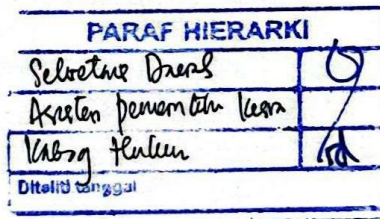 PARAF HIERARKI
Sekretaris Daerah
Asisten pemerintahan Kesra
Kabag Hukum
Diteliti tanggal